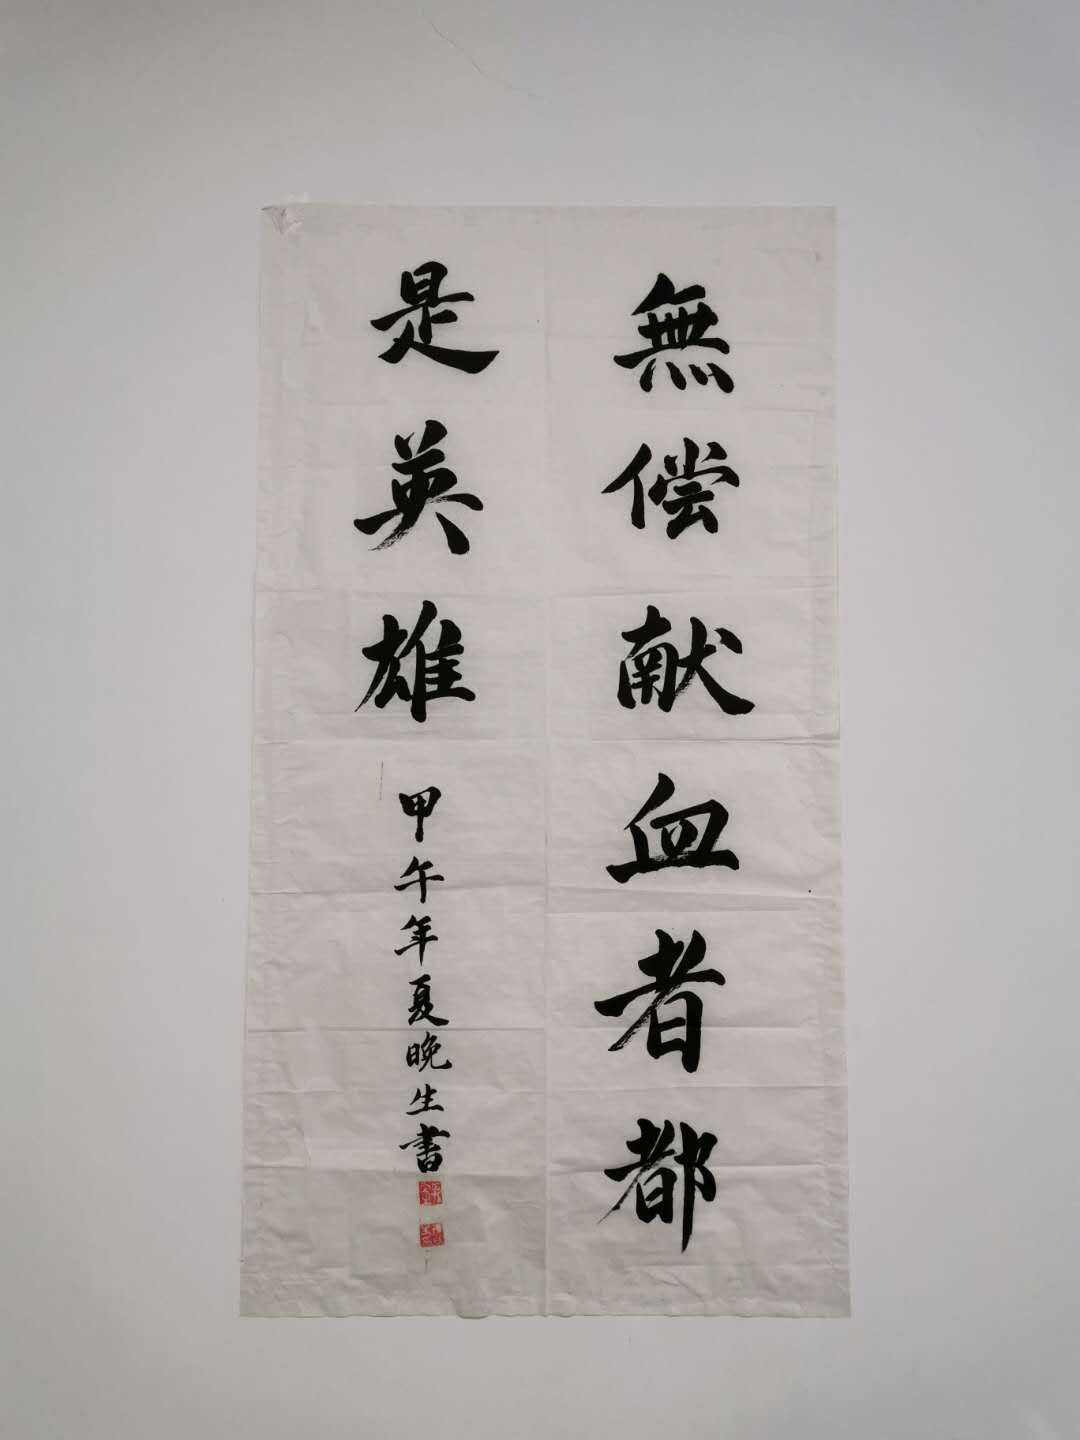 無偿献血者都
是英雄
甲午年夏晚生書